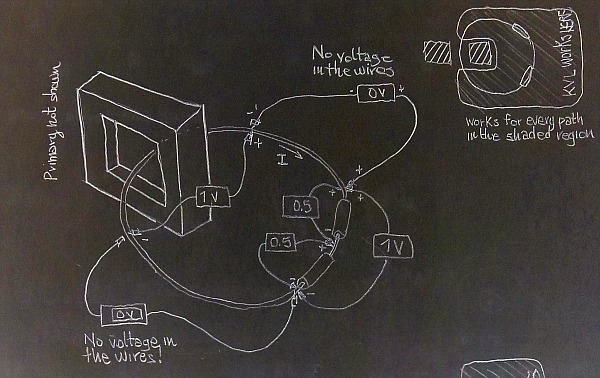 Primary not shown
No voltage
in the wires
- 0V +
-
+
I
1V
+
-
+
+
+
0.5
-
+
0.5
1V
-
-
-
0V
No voltage in
the wires!
KVL works HERE
works for every path
in the shaded region